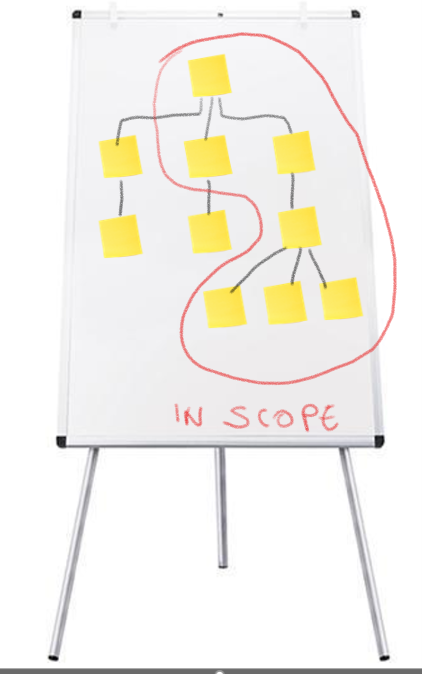 IN SCOPE